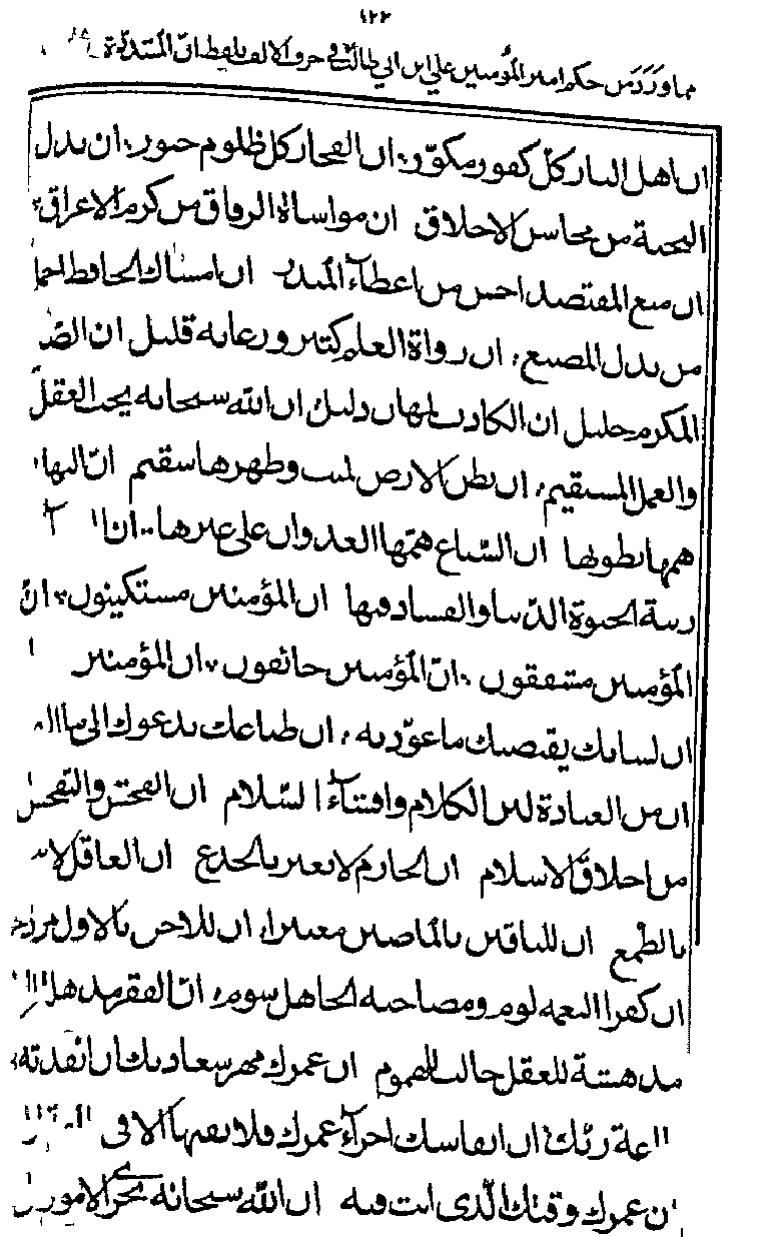 ١٢٢
مما ورد من حكم امير المؤمنين علي ابن ابي طالب في حرف الالف بلفظ انّ المشددة
ان اهل النار كلّ كفور مكور ان الفجار كل ظلوم ختور ان بذل
التحية من محاسن الاخلاق ان مواساة الرفاق من كرم الاعراق
ان منع المقتصد احسن من اعطآء المبذر ان امساك الحافظ اجمل
من بذل المضيع ان رواة العلم كثير ورعايه قليل ان
المكرم جليل ان الكاذب لمهان ذليل ان اللّه سبحانه يحب العقل
والعمل المستقيم ان بطن الارض ميت وظهرها سقيم انّ البهايم
همها بطونها ان السّباع همّها العدوان على غيرها
زينة الحيوة الدّنيا والفساد فيها ان المؤمنين مستكينون انّ
المؤمنين مشفقون انّ المؤمنين خائفون ان المؤمنين
ان لسانك يقتضيك ما عوّدته ان طباعك يدعوك الى ما
ان من العبادة لين الكلام وافشآء السّلام ان الفحش والتفحش
من اخلاق الاسلام ان الحازم لا يغتر بالخدع ان العاقل لا
بالطمع ان للباقين بالماضين معتبرا ان للاخر بالاول مزدجر
ان كفر النعمه لوم ومصاحبه الجاهل شوم انّ الفقر مذهلة
مدهشة للعقل جالب للهموم ان عمرك مهر سعادتك ان انفدته
طاعة ربّك ان انفاسك اجزآء عمرك فلا تفنها الا في
ان عمرك وقتك الّذى انت فيه ان اللّه سبحانه يجرى الامور